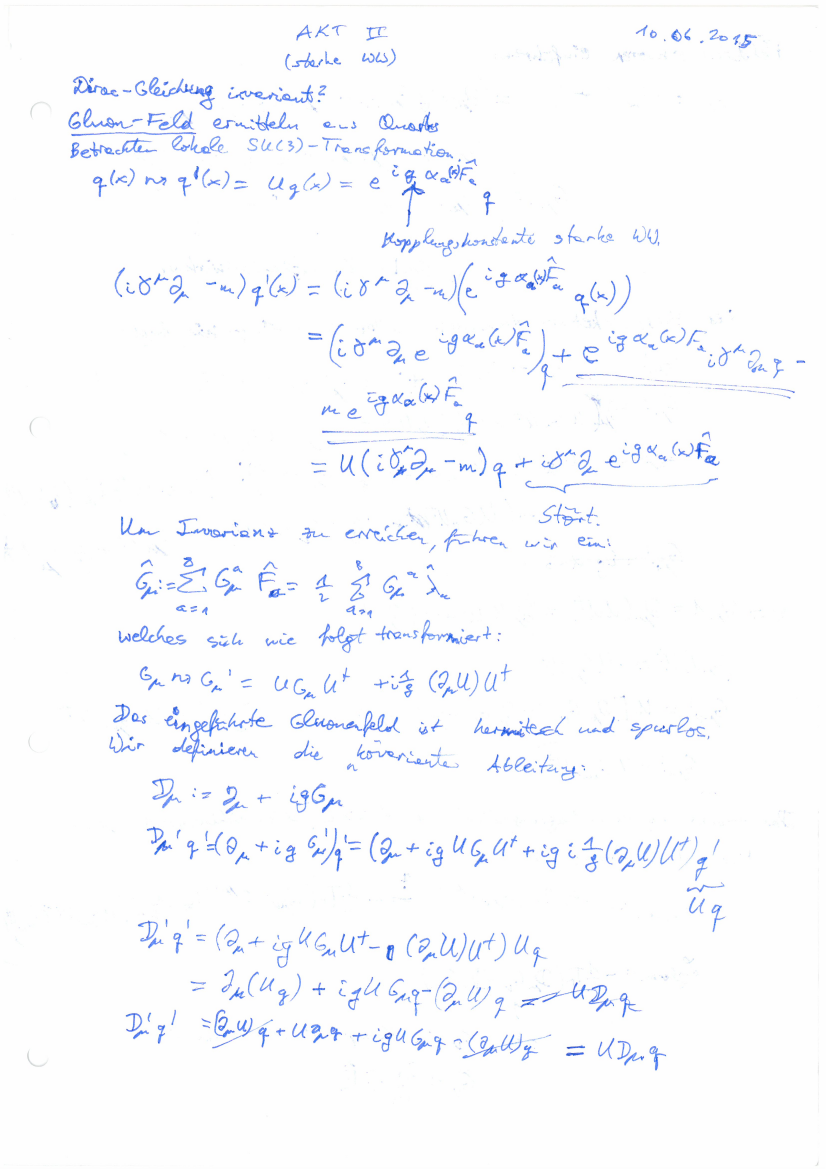 AKT II
10.06.2015
(starke WW)
Dirac-Gleichung invariant?
Gluon-Feld ermitteln aus Quarks
Betrachten lokale SU(3)-Transformation.
q(x) ⇝ q'(x) = U q(x) = e^{i g α_a(x) F̂_a} q
Kopplungskonstante starke WW.
(iγ^μ ∂_μ - m) q'(x) = (iγ^μ ∂_μ - m)(e^{i g α_a(x) F̂_a} q(x))
= (iγ^μ ∂_μ e^{i g α_a(x) F̂_a}) q + e^{i g α_a(x) F_a} iγ^μ ∂_μ q -
m e^{i g α_a(x) F̂_a} q
= U(iγ^μ ∂_μ - m) q + iγ^μ ∂_μ e^{i g α_a(x) F̂_a}
Stört.
Um Invarianz zu erreichen, führen wir ein:
Ĝ_μ := ∑_{a=1}^{8} G_μ^a F̂_a = 1/2 ∑_{a=1}^{8} G_μ^a λ̂_a
welches sich wie folgt transformiert:
G_μ ⇝ G_μ' = U G_μ U† + i 1/g (∂_μ U) U†
Das eingeführte Gluonenfeld ist hermitesch und spurlos.
Wir definieren die kovariante Ableitung:
D_μ := ∂_μ + i g G_μ
D_μ' q' = (∂_μ + i g G_μ') q' = (∂_μ + i g U G_μ U† + i g i 1/g (∂_μ U) U†) q'
U q
D_μ' q' = (∂_μ + i g U G_μ U† - (∂_μ U) U†) U q
= ∂_μ (U q) + i g U G_μ q - (∂_μ U) q = U D_μ q
D_μ' q' = (∂_μ U) q + U ∂_μ q + i g U G_μ q - (∂_μ U) q = U D_μ q